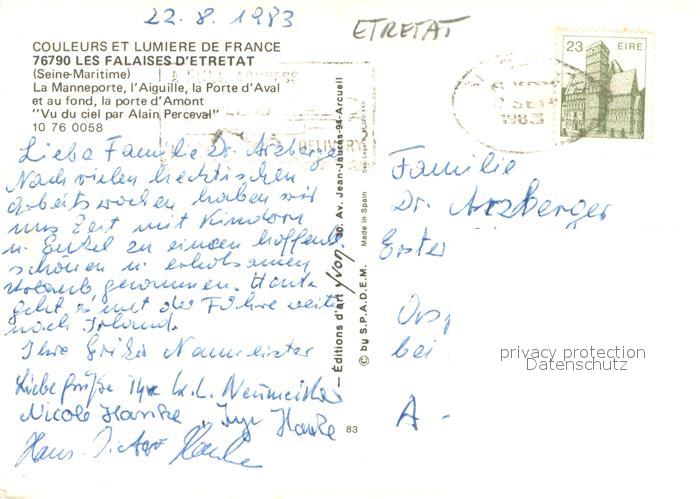 22.8.1983
ETRETAT
COULEURS ET LUMIERE DE FRANCE
76790 LES FALAISES D'ETRETAT
(Seine-Maritime)
La Manneporte, l'Aiguille, la Porte d'Aval
et au fond, la porte d'Amont
"Vu du ciel par Alain Perceval"
10 76 0058
DELIVERY
23 EIRE
SEP
1983
Liebe Familie Dr. Arzberger
Nach vielen hektischen
Arbeitswochen haben wir
uns Zeit mit Kindern
u. Enkel zu einem hoffentl.
schönen u. erholsamen
Urlaub genommen. Heute
geht's mit der Fähre weiter
nach Irland.
Ihre
Liebe Grüße Ihre Neumeister
Nicole Hanke, Inge Hanke
Hans-Dieter Hanke
Editions d'art Yvon. 30, Av. Jean-Jaurès-94-Arcueil
Made in Spain
© by S.P.A.D.E.M.
83
Familie
Dr. Arzberger
Erster
bei
A -
privacy protection
Datenschutz